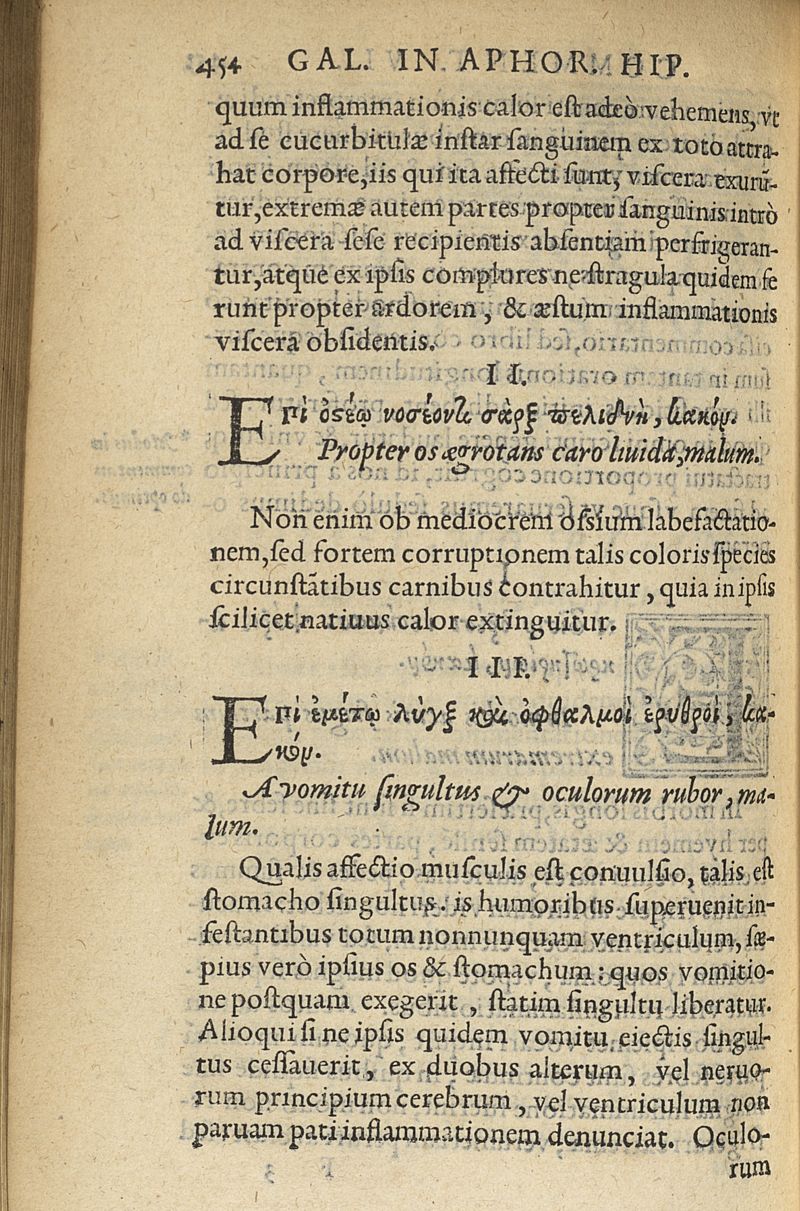 454 GAL. IN APHOR. HIP.
quum inflammationis calor est adeò vehemens, vt
ad se cucurbitulæ instar sanguinem ex toto attra-
hat corpore, iis qui ita affecti sunt, viscera exurũ-
tur, extremæ autem partes propter sanguinis intrò
ad viscera sese recipientis absentiam perfrigeran-
tur, atque ex ipsis complures ne stragula quidem fe
runt propter ardorem, & æstum inflammationis
viscera obsidentis.
II.
Επὶ ὀστέῳ νοσέοντι σὰρξ πελιδνὴ, κακόν.
Propter os ægrotans caro liuida, malum.
Non enim ob mediocrem ossium labefactatio-
nem, sed fortem corruptionem talis coloris species
circunstãtibus carnibus contrahitur, quia in ipsis
scilicet natiuus calor extinguitur.
III.
Επὶ ἐμέτῳ λύγξ καὶ ὀφθαλμοὶ ἐρυθροὶ, κα-
κόν.
A vomitu singultus & oculorum rubor, ma-
lum.
Qualis affectio musculis est conuulsio, talis est
stomacho singultus. is humoribus superuenit in-
festantibus totum nonnunquam ventriculum, sæ-
pius verò ipsius os & stomachum: quos vomitio-
ne postquam exegerit, statim singultu liberatur.
Alioqui si ne ipsis quidem vomitu eiectis singul-
tus cessauerit, ex duobus alterum, vel neruo-
rum principium cerebrum, vel ventriculum non
paruam pati inflammationem denunciat. Oculo-
rum